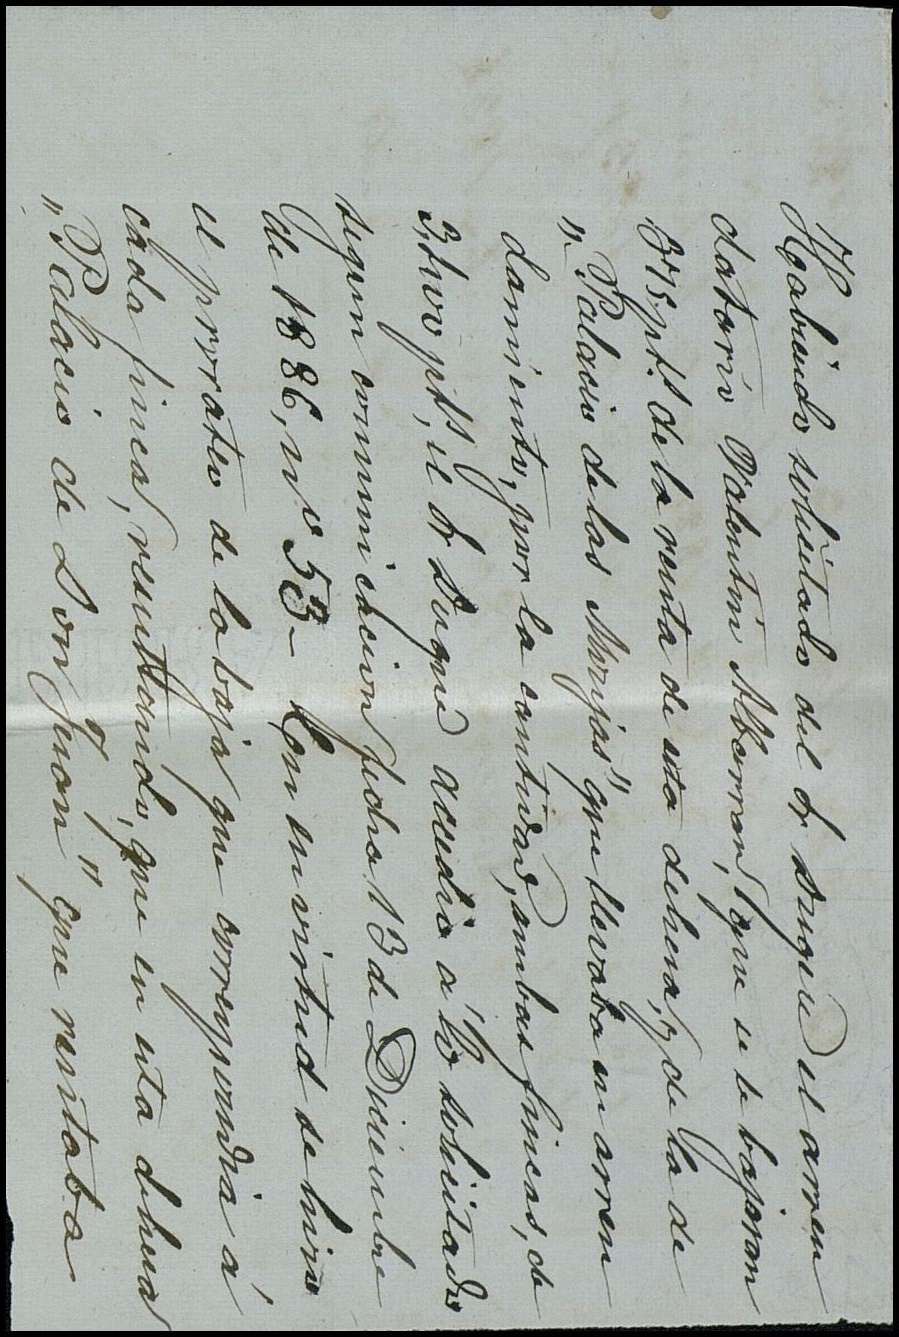 Habiendo solicitado del Sr Duque el arren
datario Valentin Abarran, que se le bajaran
375 pts. de la renta de esta dehesa, y de la de
"Palacio de las Monjas" que llevaba en arren
damiento, por la cantidad, ambas fincas, de
pts, el Sr Duque accedio a lo solicitado
segun comunicacion fecha 13 de Diciembre
de 1886, nº 53 - Con su virtud se hizo
el prorrateo de la baja que correspondia á
cada finca, resultando, que en esta dhesa
"Palacio de Don Juan" que rentaba